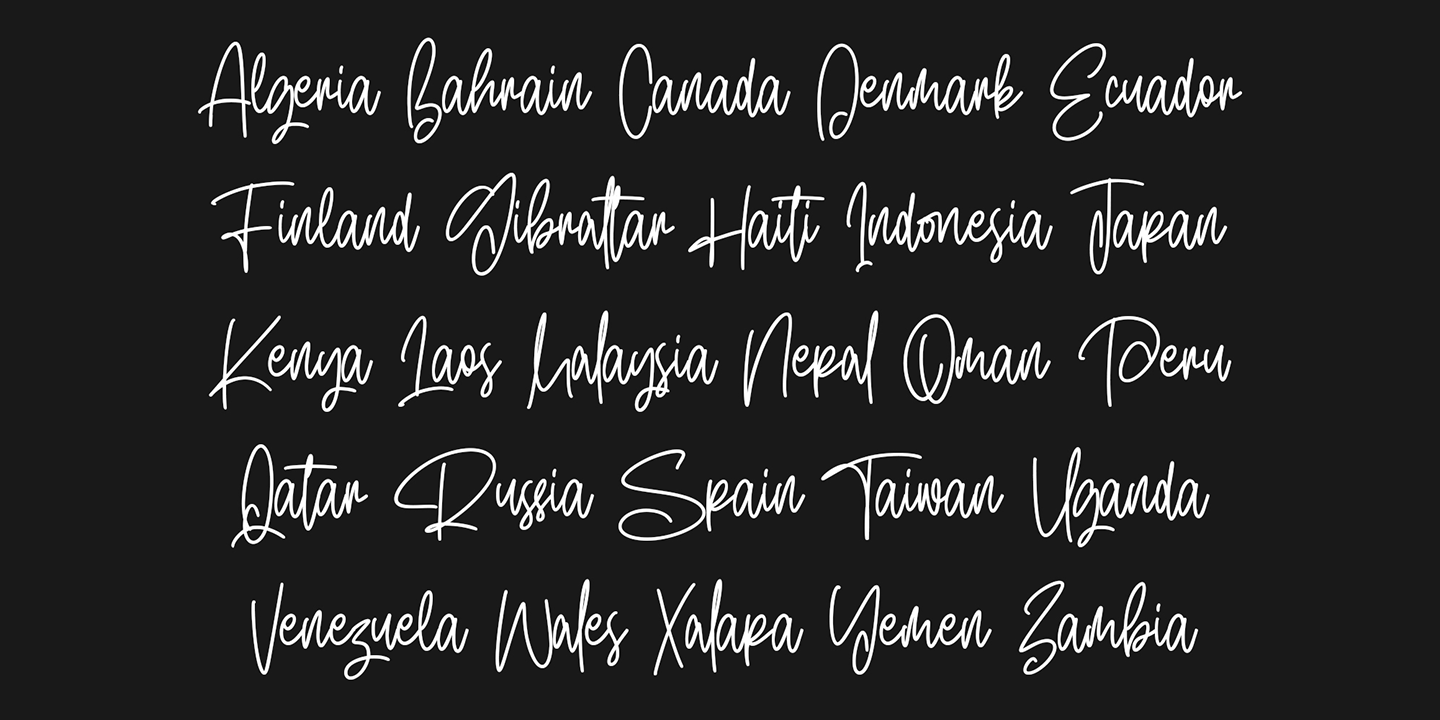 Algeria Bahrain Canada Denmark Ecuador
Finland Gibraltar Haiti Indonesia Japan
Kenya Laos Malaysia Nepal Oman Peru
Qatar Russia Spain Taiwan Uganda
Venezuela Wales Xalapa Yemen Zambia